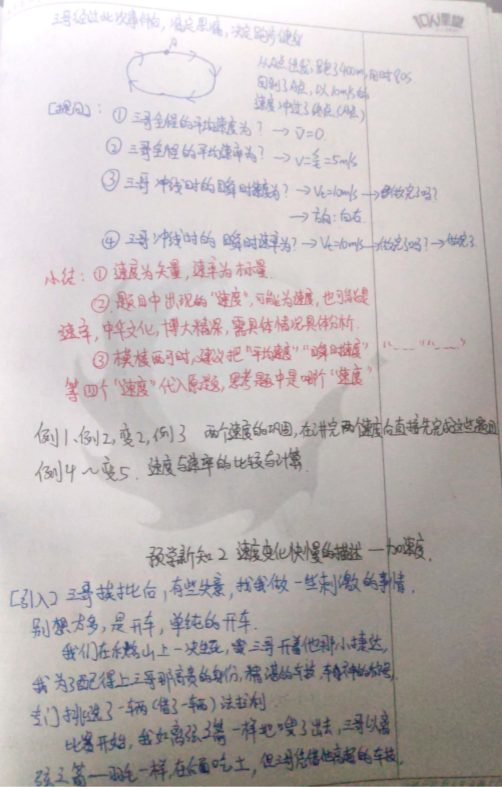 三哥经过此次事件后,痛定思痛,决定跑步健身
A
从A点出发,跑了400m,用时80s
回到了A点,以10m/s的
速度冲过了终点(A点)
[提问]: ① 三哥全程的平均速度为? → v̄=0
② 三哥全程的平均速率为? → v=s/t=5m/s
③ 三哥冲线时的瞬时速度为? → Vt=10m/s → 做完了吗?
→ 方向:向右
④ 三哥冲线时的瞬时速率为? → Vt=10m/s → 做完了吗? → 做完了
小结: ① 速度为矢量,速率为标量
② 题目中出现的“速度”,可能为速度,也可能是
速率,中华文化,博大精深,需具体情况具体分析.
③ 模棱两可时,建议把“平均速度”“瞬时速度”“……”“……”
等四个“速度”代入原题,思考题中是哪个“速度”
例1、例2,变2,例3 两个速度的巩固,在讲完两个速度后直接先完成这些题目
例4~变5. 速度与速率的比较与计算.
预学新知2 速度变化快慢的描述——加速度.
[引入] 三哥被批后,有些失意,找我做一些刺激的事情,
别想太多,是开车,单纯的开车.
我们在山上一决生死,三哥开着他那小捷达,
我为了配得上三哥那高贵的身份,精湛的车技,车神的称号,
专门挑选了一辆(借了一辆)法拉利
比赛开始,我如离弦之箭一样地嗖了出去,三哥以离
弦之箭——羽毛一样,在后面吃土,但三哥凭借他高超的车技,